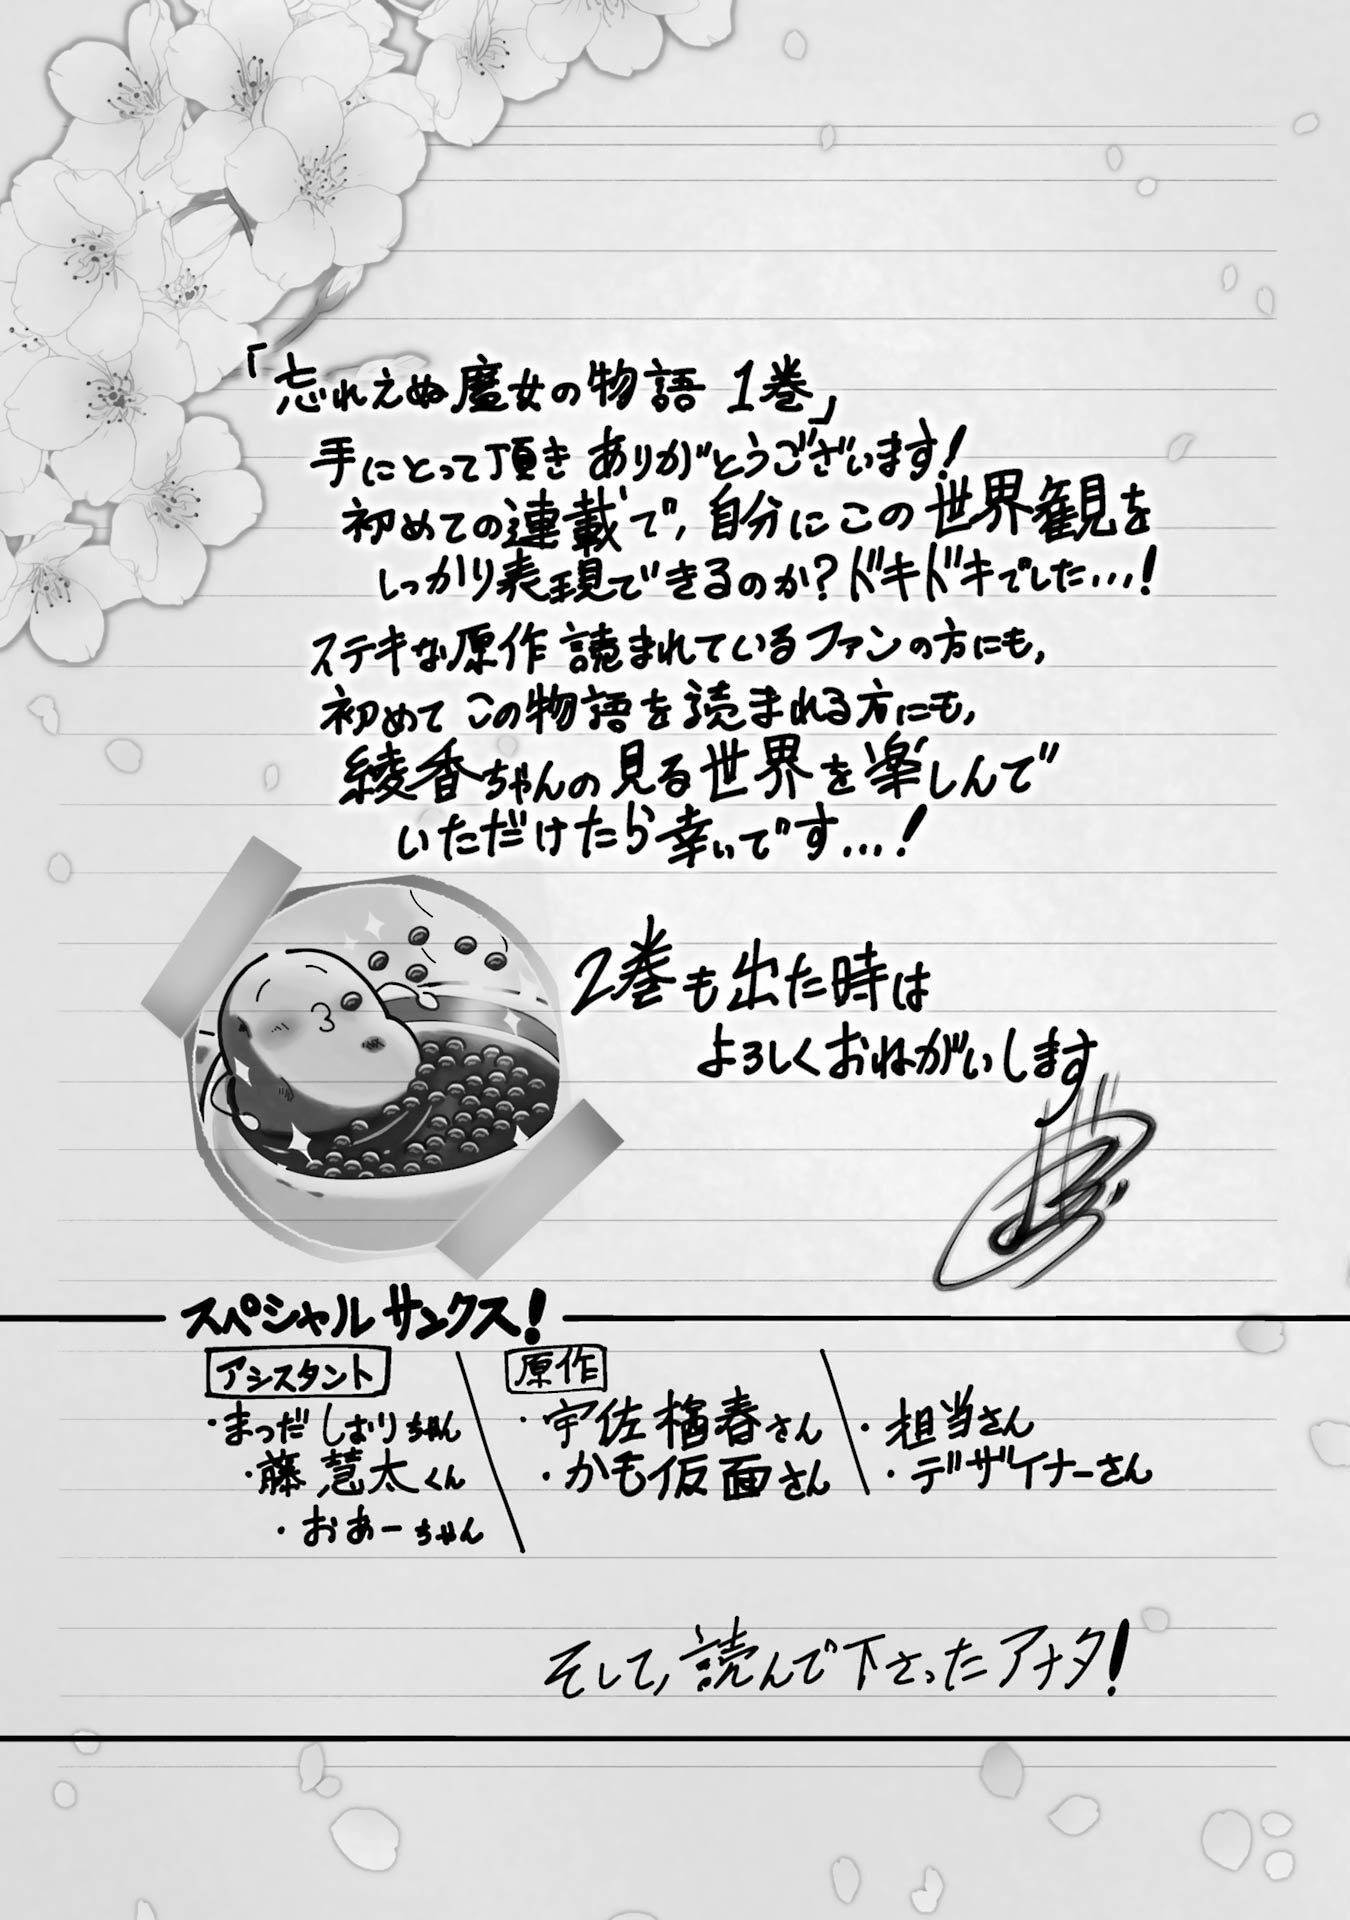 「忘れえぬ魔女の物語 1巻」
手にとって頂き ありがとうございます!
初めての連載で、自分にこの世界観を
しっかり表現できるのか?ドキドキでした...!
ステキな原作 読まれているファンの方にも、
初めて この物語を読まれる方にも、
綾香ちゃんの見る世界を楽しんで
いただけたら幸いです...!
2巻も出た時は
よろしくおねがいします
スペシャル サンクス!
アシスタント
・まつだ しおりちゃん
・藤 慧太くん
・おあーちゃん
原作
・宇佐楢春さん
・かも仮面さん
・担当さん
・デザイナーさん
そして、読んで下さったアナタ!